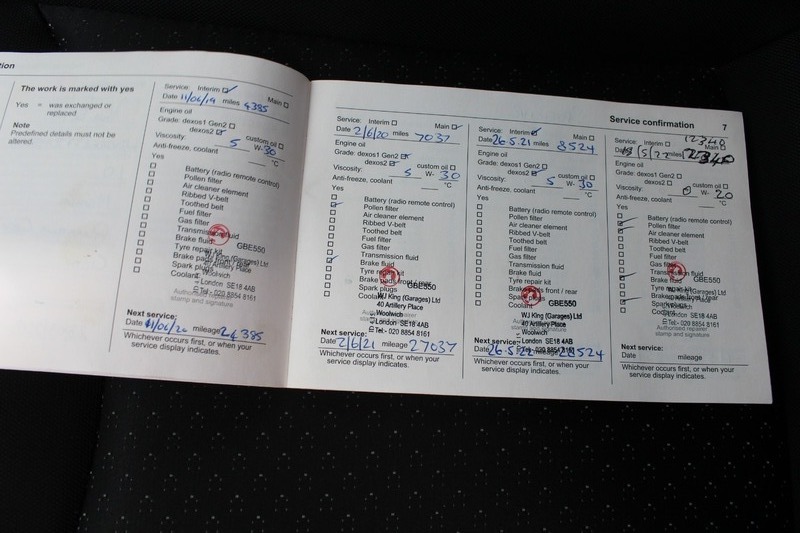 tion
The work is marked with yes
Yes = was exchanged or
replaced
Note
Predefined details must not be
altered.
Service: Interim
Main
Date 11/06/19 miles 4385
Engine oil
Grade: dexos1 Gen2
dexos2
custom oil
Viscosity: 5 W- 30
Anti-freeze, coolant °C
Yes
Battery (radio remote control)
Pollen filter
Air cleaner element
Ribbed V-belt
Toothed belt
Fuel filter
Gas filter
Transmission fluid
Brake fluid
Tyre repair kit
Brake pads front / rear
Spark plugs
Coolant
GBE550
WJ King (Garages) Ltd
40 Artillery Place
Woolwich
London SE18 4AB
Tel - 020 8854 8161
Authorised repairer
stamp and signature
Next service:
Date 11/06/20 mileage 24385
Whichever occurs first, or when your
service display indicates.
Service: Interim
Main
Date 2/6/20 miles 7037
Engine oil
Grade: dexos1 Gen2
dexos2
custom oil
Viscosity: 5 W- 30
Anti-freeze, coolant °C
Yes
Battery (radio remote control)
Pollen filter
Air cleaner element
Ribbed V-belt
Toothed belt
Fuel filter
Gas filter
Transmission fluid
Brake fluid
Tyre repair kit
Brake pads front / rear
Spark plugs
Coolant
GBE550
WJ King (Garages) Ltd
40 Artillery Place
Woolwich
London SE18 4AB
Tel - 020 8854 8161
Next service:
Date 2/6/21 mileage 27037
Whichever occurs first, or when your
service display indicates.
Service: Interim
Main
Date 26.5.21 miles 8524
Engine oil
Grade: dexos1 Gen2
dexos2
custom oil
Viscosity: 5 W- 30
Anti-freeze, coolant °C
Yes
Battery (radio remote control)
Pollen filter
Air cleaner element
Ribbed V-belt
Toothed belt
Fuel filter
Gas filter
Transmission fluid
Brake fluid
Tyre repair kit
Brake pads front / rear
Spark plugs
Coolant
GBE550
WJ King (Garages) Ltd
40 Artillery Place
Woolwich
London SE18 4AB
Tel - 020 8854 8161
Next service:
Date 26.5.22 mileage 28524
Whichever occurs first, or when your
service display indicates.
Service confirmation 7
12340
Service: Interim
Main
Date /5/22 miles
Engine oil
Grade: dexos1 Gen2
dexos2
custom oil
Viscosity: 0 W- 20
Anti-freeze, coolant °C
Yes
Battery (radio remote control)
Pollen filter
Air cleaner element
Ribbed V-belt
Toothed belt
Fuel filter
Gas filter
Transmission fluid
Brake fluid
Tyre repair kit
Brake pads front / rear
Spark plugs
Coolant
GBE550
WJ King (Garages) Ltd
40 Artillery Place
Woolwich
London SE18 4AB
Tel - 020 8854 8161
Authorised repairer
stamp and signature
Next service:
Date mileage
Whichever occurs first, or when your
service display indicates.